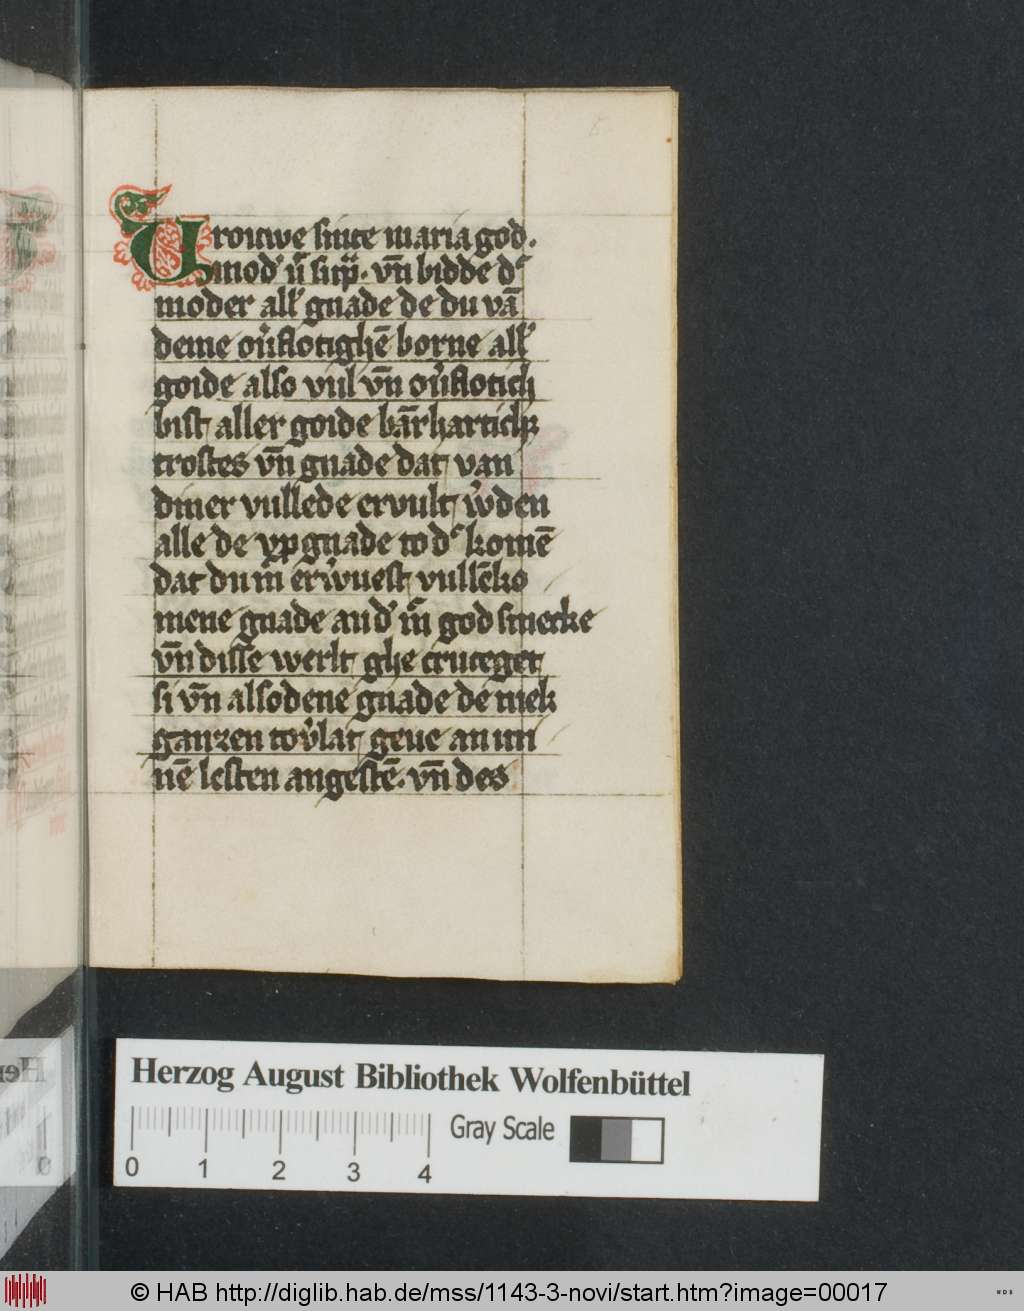 Vrouwe sinte maria god.
mod' vn̄ bidde d'
moder all' gnade de du vā
deme ov'flotighē borne all'
goide also vul vn̄ ov'flotich
bist aller goide barmharticheit
trostes vn̄ gnade dat van
diner vullede ervult w'den
alle de gnade to d' komē
dat du m' vullēko
mene gnade an d' god smecke
vn̄ disse werlt ghe cruceget
si vn̄ alsodene gnade de mek
ganzen tov'lat geue an mi
nē lesten angestē. vn̄ des
Herzog August Bibliothek Wolfenbüttel
Gray Scale
0 1 2 3 4
© HAB http://diglib.hab.de/mss/1143-3-novi/start.htm?image=00017